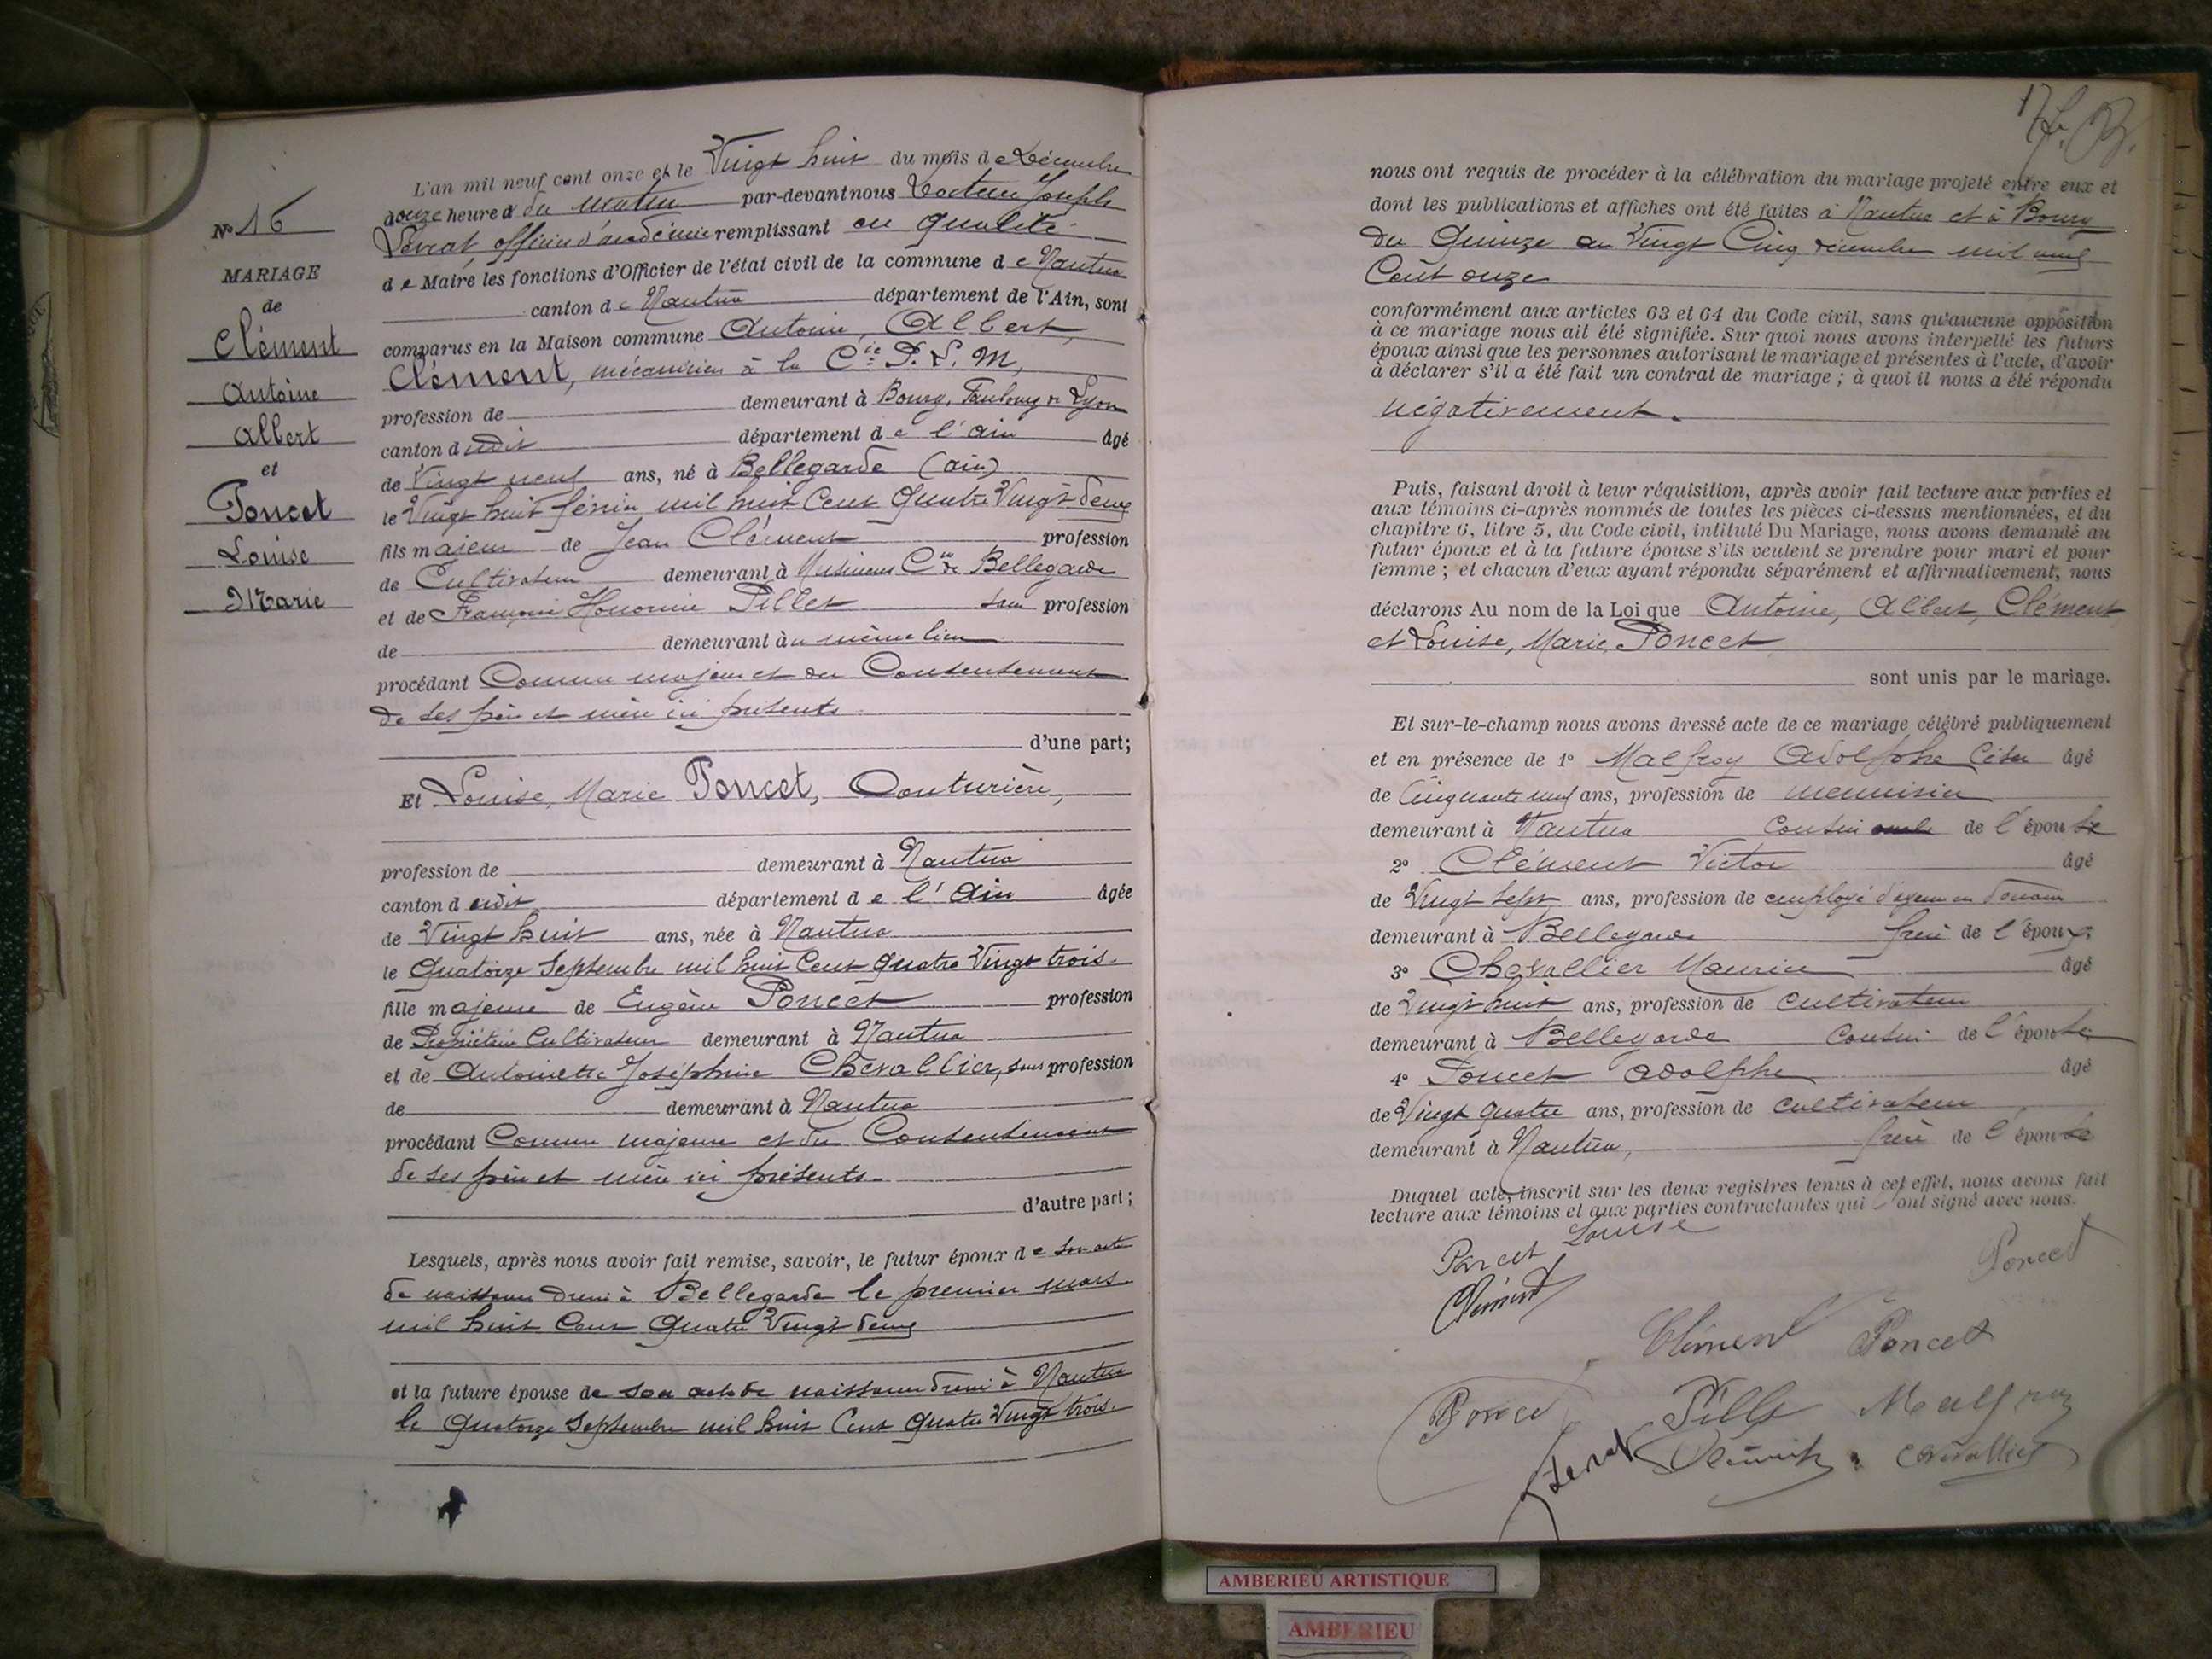 N° 16
MARIAGE
de
Clément
Antoine
Albert
et
Poncet
Louise
Marie
L'an mil neuf cent onze et le Vingt huit du mois de Décembre
onze heures du matin par-devant nous Docteur Joseph
officier d'académie remplissant en qualité
de Maire les fonctions d'Officier de l'état civil de la commune de Nantua
canton de Nantua département de l'Ain, sont
comparus en la Maison commune Antoine, Albert,
Clément, mécanicien à la Cie P. L. M,
profession de demeurant à Bourg, Faubourg de Lyon
canton dudit département de l'ain âgé
de Vingt neuf ans, né à Bellegarde (ain)
le Vingt huit février mil huit Cent Quatre Vingt deux
fils majeur de Jean Clément profession
de Cultivateur demeurant à Musinens Cne de Bellegarde
et de Françoise Honorine Pillet sans profession
de demeurant au même lieu
procédant Comme majeur et du Consentement
de ses père et mère ici présents
d'une part;
Et Louise, Marie Poncet, Couturière,
profession de demeurant à Nantua
canton dudit département de l'Ain âgée
de Vingt huit ans, née à Nantua
le Quatorze Septembre mil huit Cent Quatre Vingt trois.
fille majeure de Eugène Poncet profession
de Propriétaire Cultivateur demeurant à Nantua
et de Antoinette Joséphine Chevallier, sans profession
de demeurant à Nantua
procédant Comme majeure et du Consentement
de ses père et mère ici présents.
d'autre part;
Lesquels, après nous avoir fait remise, savoir, le futur époux de son acte
de naissance dressé à Bellegarde le premier mars
mil huit Cent Quatre Vingt deux
et la future épouse de son acte de naissance dressé à Nantua
le Quatorze Septembre mil huit Cent Quatre Vingt trois.
17
nous ont requis de procéder à la célébration du mariage projeté entre eux et
dont les publications et affiches ont été faites à Nantua et à Bourg
du Quinze au Vingt Cinq décembre mil neuf
Cent onze
conformément aux articles 63 et 64 du Code civil, sans qu'aucune opposition
à ce mariage nous ait été signifiée. Sur quoi nous avons interpellé les futurs
époux ainsi que les personnes autorisant le mariage et présentes à l'acte, d'avoir
à déclarer s'il a été fait un contrat de mariage; à quoi il nous a été répondu
négativement.
Puis, faisant droit à leur réquisition, après avoir fait lecture aux parties et
aux témoins ci-après nommés de toutes les pièces ci-dessus mentionnées, et du
chapitre 6, titre 5, du Code civil, intitulé Du Mariage, nous avons demandé au
futur époux et à la future épouse s'ils veulent se prendre pour mari et pour
femme; et chacun d'eux ayant répondu séparément et affirmativement, nous
déclarons Au nom de la Loi que Antoine, Albert, Clément
et Louise, Marie, Poncet
sont unis par le mariage.
Et sur-le-champ nous avons dressé acte de ce mariage célébré publiquement
et en présence de 1° Malfroy Adolphe César âgé
de Cinquante neuf ans, profession de menuisier
demeurant à Nantua Cousin de l'épouse
2° Clément Victor âgé
de Vingt sept ans, profession de employé
demeurant à Bellegarde frère de l'époux
3° Chevallier Maurice âgé
de Vingt huit ans, profession de cultivateur
demeurant à Bellegarde Cousin de l'épouse
4° Poncet Adolphe âgé
de Vingt quatre ans, profession de cultivateur
demeurant à Nantua, frère de l'épouse
Duquel acte, inscrit sur les deux registres tenus à cet effet, nous avons fait
lecture aux témoins et aux parties contractantes qui ont signé avec nous.
Poncet Louise
Poncet
Clément
Clément Poncet
Poncet Pillet Malfroy
Clément Chevallier
AMBERIEU ARTISTIQUE
AMBERIEU